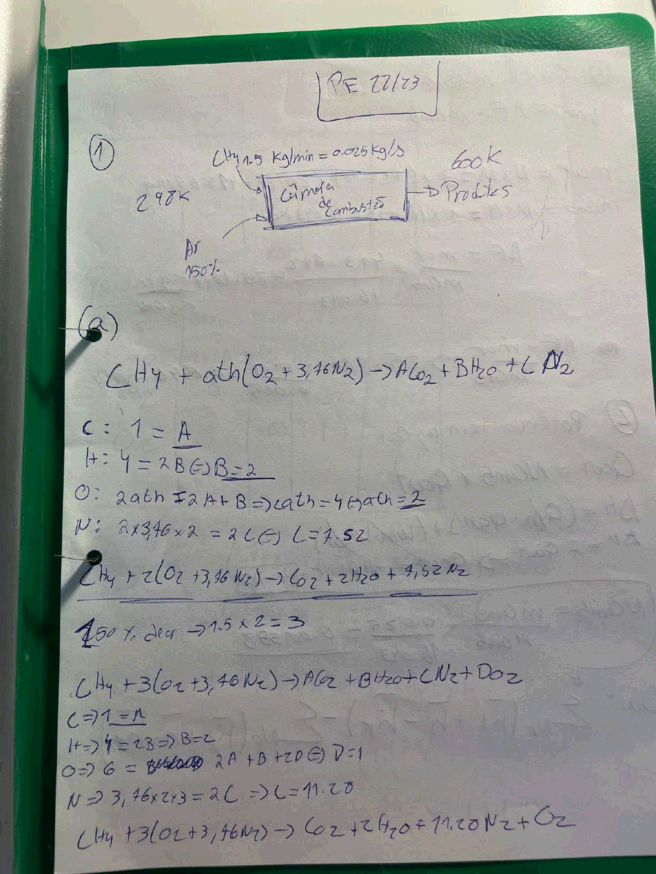 PE 22/23
①
CH4 1.5 kg/min = 0.025 kg/s
600K
298K
Câmara de combustão
→ Produtos
Ar
150%
(a)
CH4 + ath(O2 + 3,76N2) → ACO2 + BH2O + C N2
C: 1 = A
H: 4 = 2B ⇔ B = 2
O: 2ath = 2A + B ⇒ 2ath = 4 ⇔ ath = 2
N: 2×3,76×2 = 2C ⇔ C = 7.52
CH4 + 2(O2 + 3,76 N2) → CO2 + 2H2O + 7,52 N2
150% de ar → 1.5 × 2 = 3
CH4 + 3(O2 + 3,76N2) → ACO2 + BH2O + CN2 + DO2
C ⇒ 1 = A
H ⇒ 4 = 2B ⇒ B = 2
O ⇒ 6 = 2A + B + 2D ⇔ D = 1
N ⇒ 3,76×2×3 = 2C ⇒ C = 11.28
CH4 + 3(O2 + 3,76N2) → CO2 + 2H2O + 11.28 N2 + O2